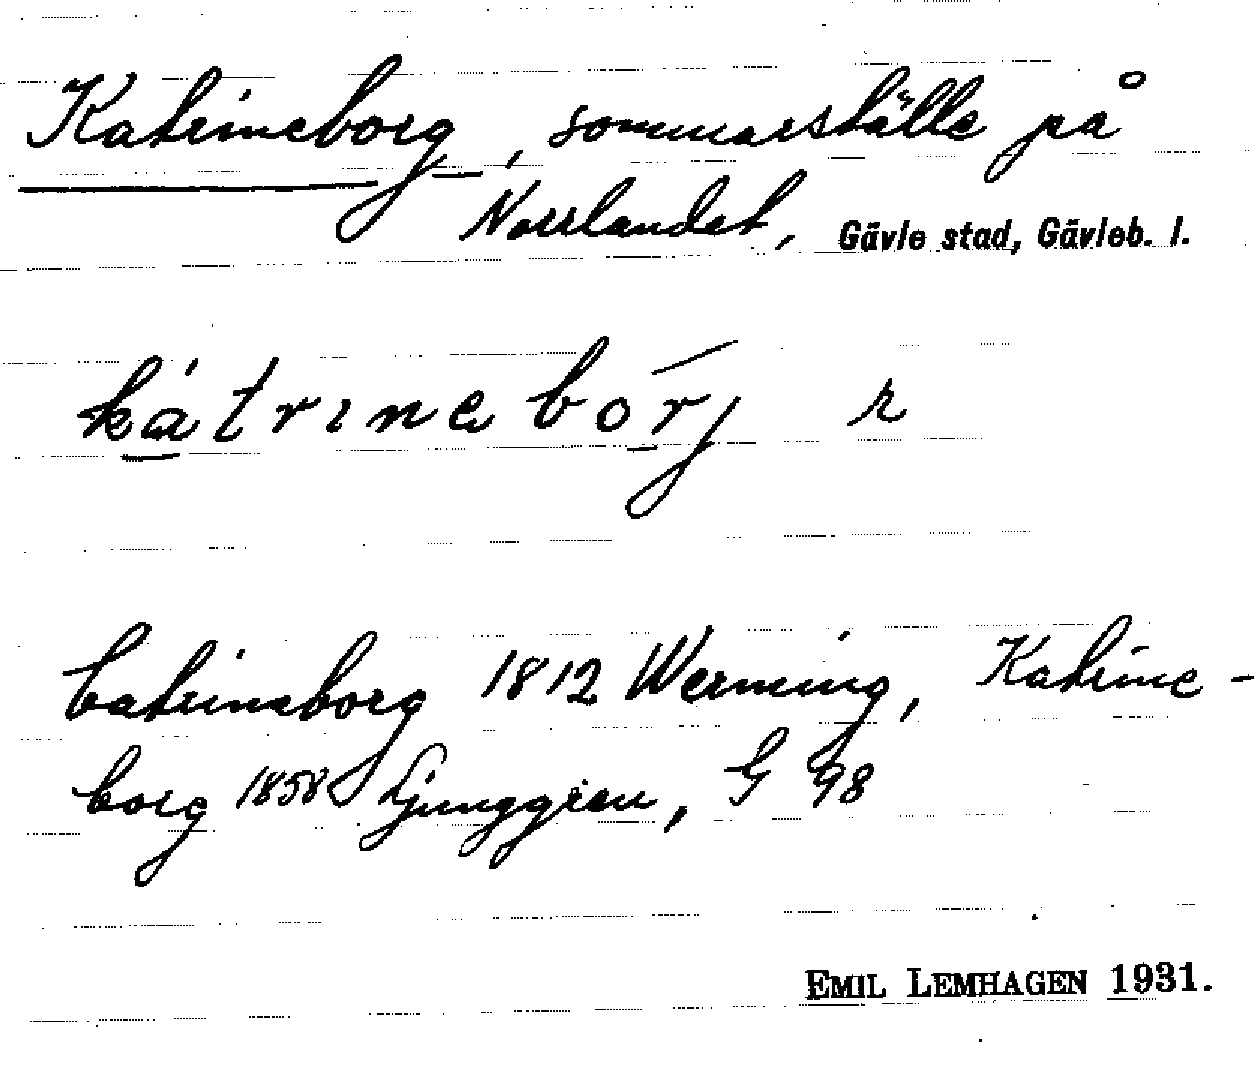 Katrineborg, sommarställe på
Norrlandet, Gävle stad, Gävleb. l.
kátrinebórj r
Catrineborg 1812 Werming, Katrine-
borg 1858 Ljunggren, G 98
EMIL LEMHAGEN 1931.